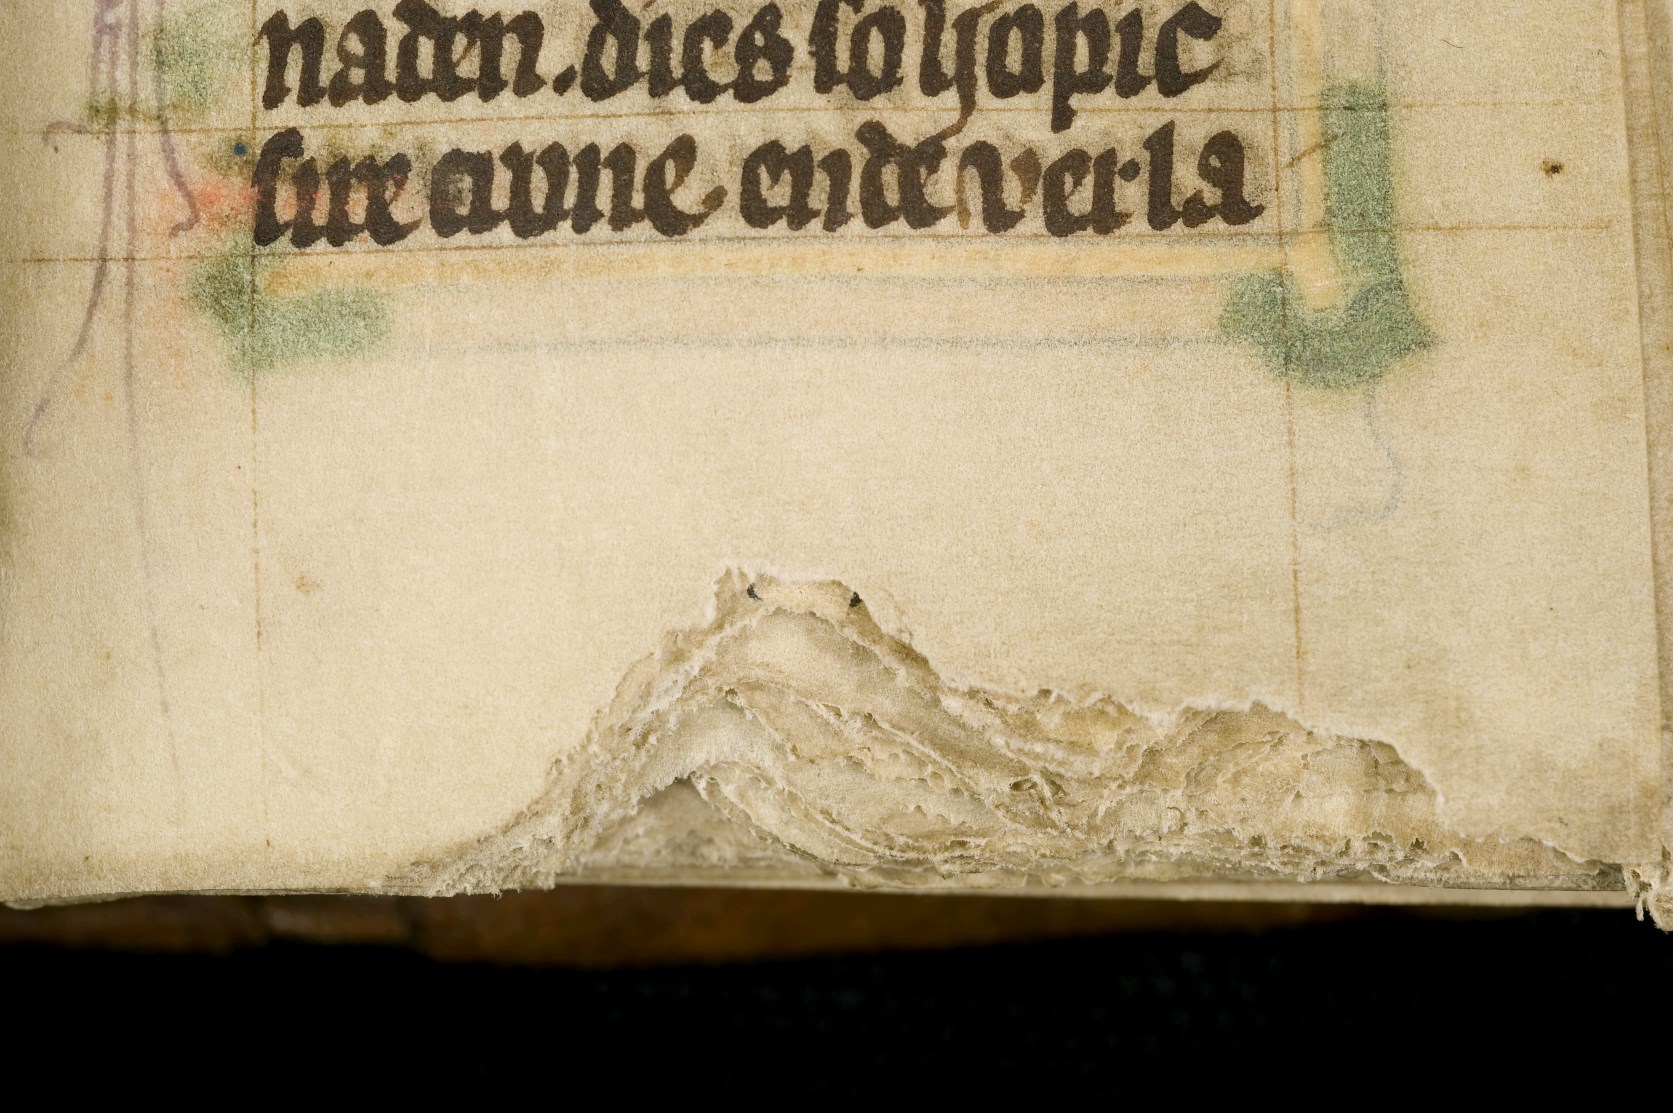 naden. dies so hopic
sure avne. ende verla